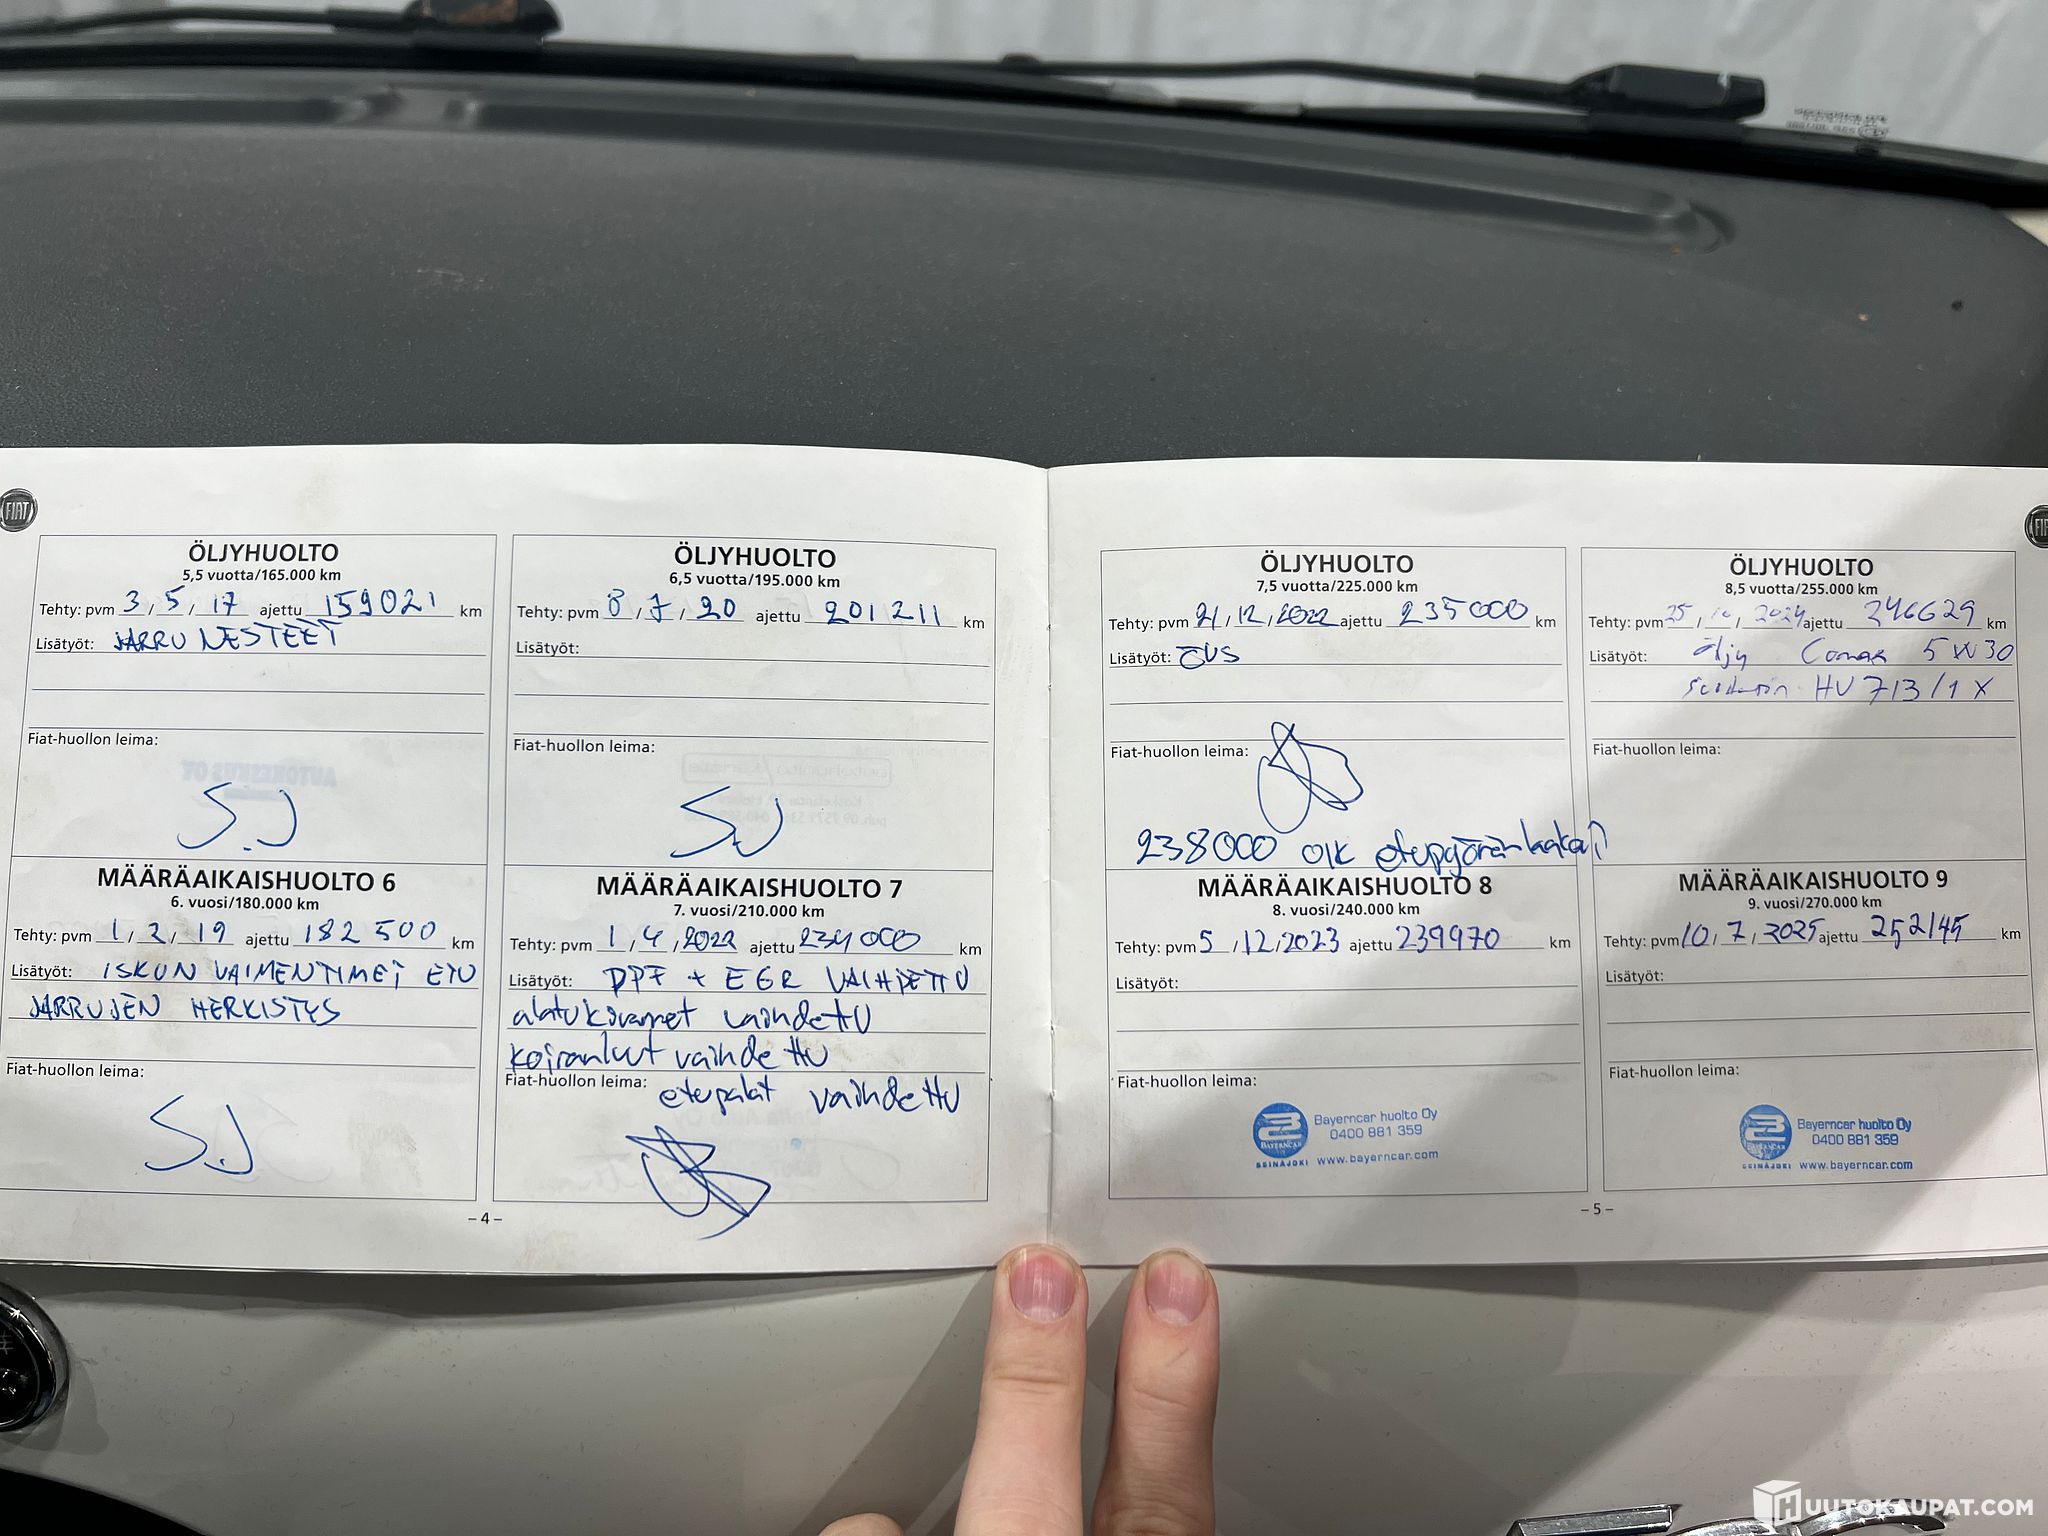 FIAT
ÖLJYHUOLTO
5,5 vuotta/165.000 km
Tehty: pvm 3 / 5 / 17 ajettu 159021 km
Lisätyöt: JARRU NESTEET
Fiat-huollon leima:
S.J
MÄÄRÄAIKAISHUOLTO 6
6. vuosi/180.000 km
Tehty: pvm 1 / 2 / 19 ajettu 182 500 km
Lisätyöt: ISKUN VAIMENTIMET ETU
JARRUJEN HERKISTYS
Fiat-huollon leima:
S.J
ÖLJYHUOLTO
6,5 vuotta/195.000 km
Tehty: pvm 8 / 7 / 20 ajettu 201 211 km
Lisätyöt:
Fiat-huollon leima:
S.J
MÄÄRÄAIKAISHUOLTO 7
7. vuosi/210.000 km
Tehty: pvm 1 / 4 / 2022 ajettu 234 000 km
Lisätyöt: DPF + EGR VAIHDETTU
alatukivarret vaihdettu
koiranluut vaihdettu
Fiat-huollon leima: etupalat vaihdettu
– 4 –
ÖLJYHUOLTO
7,5 vuotta/225.000 km
Tehty: pvm 21 / 12 / 2022 ajettu 235000 km
Lisätyöt:
Fiat-huollon leima:
238000 OIK etupyöränlaakeri
MÄÄRÄAIKAISHUOLTO 8
8. vuosi/240.000 km
Tehty: pvm 5 / 12 / 2023 ajettu 239970 km
Lisätyöt:
Fiat-huollon leima:
Bayerncar huolto Oy
0400 881 359
BAYERNCAR
SEINÄJOKI www.bayerncar.com
ÖLJYHUOLTO
8,5 vuotta/255.000 km
Tehty: pvm 25 / 10 / 2024 ajettu 246629 km
Lisätyöt: öljy Comax 5W30
suodatin HU 713/1X
Fiat-huollon leima:
MÄÄRÄAIKAISHUOLTO 9
9. vuosi/270.000 km
Tehty: pvm 10 / 7 / 2025 ajettu 252145 km
Lisätyöt:
Fiat-huollon leima:
Bayerncar huolto Oy
0400 881 359
BAYERNCAR
SEINÄJOKI www.bayerncar.com
– 5 –
HUUTOKAUPAT.COM